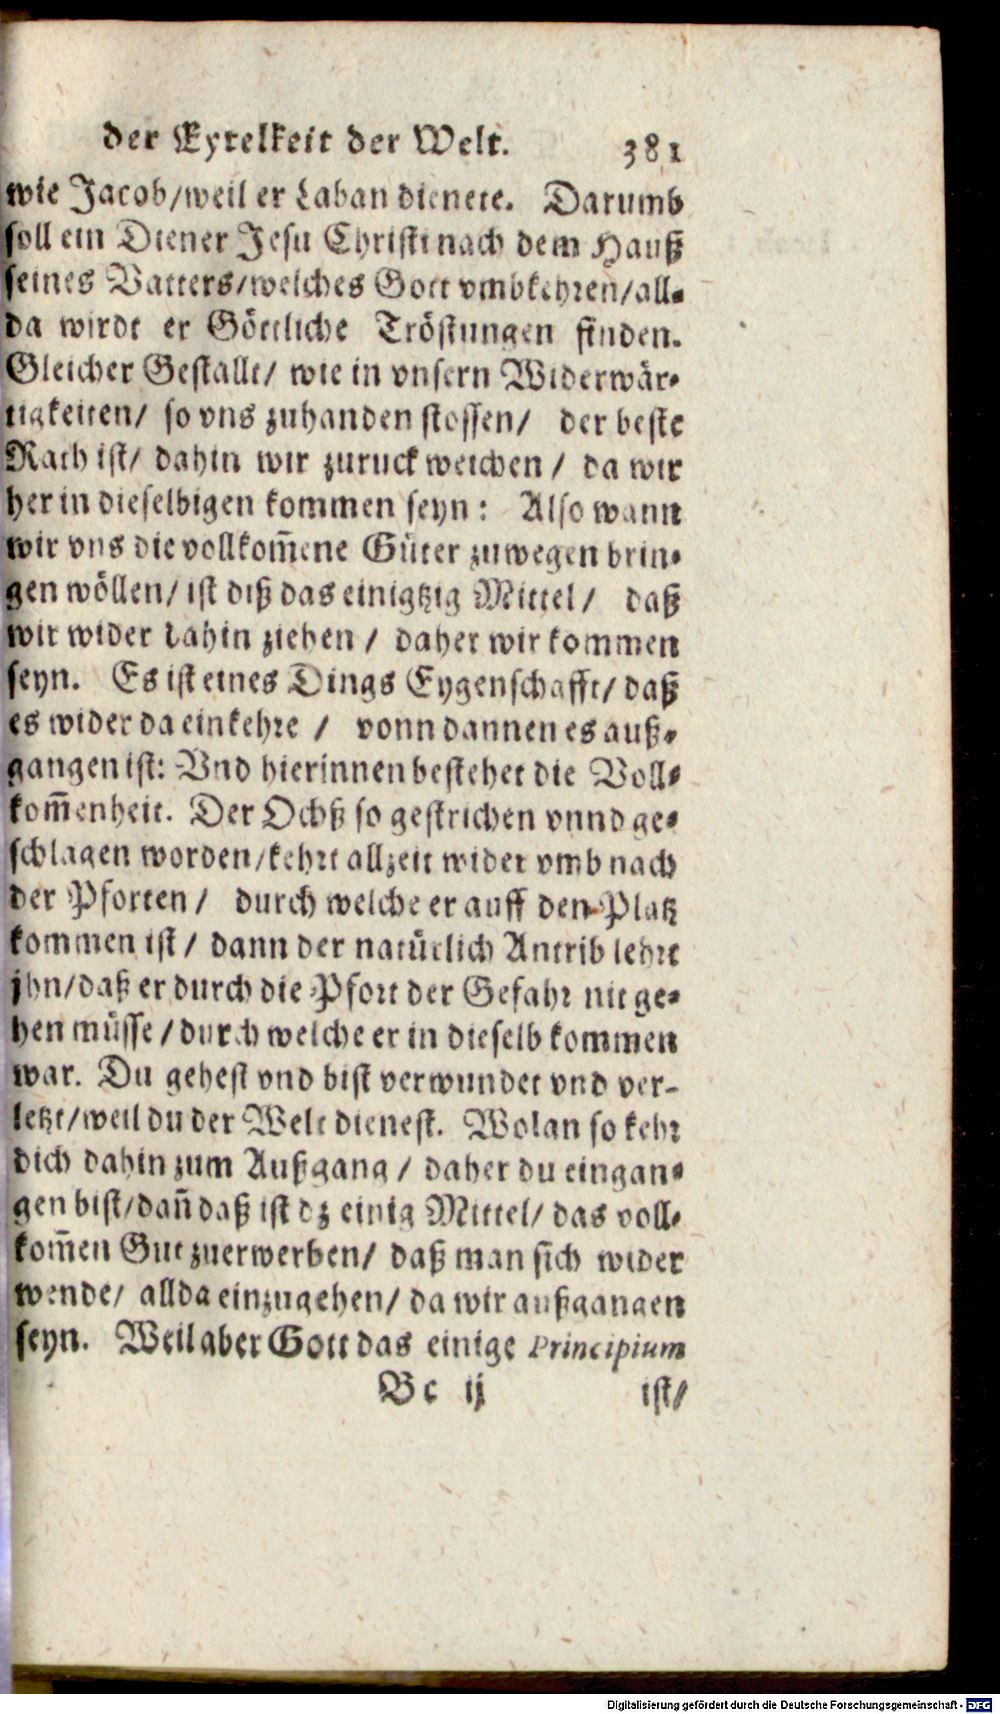 der Eytelkeit der Welt. 381
wie Jacob/weil er Laban dienete. Darumb
soll ein Diener Jesu Christi nach dem Hauß
seines Vatters/welches Gott vmbkehren/all-
da wirdt er Göttliche Tröstungen finden.
Gleicher Gestallt/ wie in vnsern Widerwär-
tigkeiten/ so vns zuhanden stossen/ der beste
Rath ist/ dahin wir zuruck weichen / da wir
her in dieselbigen kommen seyn: Also wann
wir vns die vollkom̃ene Güter zuwegen brin-
gen wöllen/ ist diß das einigtzig Mittel/ daß
wir wider dahin ziehen / daher wir kommen
seyn. Es ist eines Dings Eygenschafft/ daß
es wider da einkehre / vonn dannen es auß-
gangen ist: Vnd hierinnen bestehet die Voll-
kom̃enheit. Der Ochß so gestrichen vnnd ge-
schlagen worden/kehrt allzeit wider vmb nach
der Pforten / durch welche er auff den Platz
kommen ist / dann der natürlich Antrib lehrt
jhn/daß er durch die Pfort der Gefahr nit ge-
hen müsse / durch welche er in dieselb kommen
war. Du gehest vnd bist verwundet vnd ver-
letzt/weil du der Welt dienest. Wolan so kehr
dich dahin zum Außgang / daher du eingan-
gen bist/dañ daß ist dz einig Mittel/ das voll-
kom̃en Gut zuerwerben/ daß man sich wider
wende/ allda einzugehen/ da wir außgangen
seyn. Weil aber Gott das einige Principium
Bc ij ist/
Digitalisierung gefördert durch die Deutsche Forschungsgemeinschaft - DFG